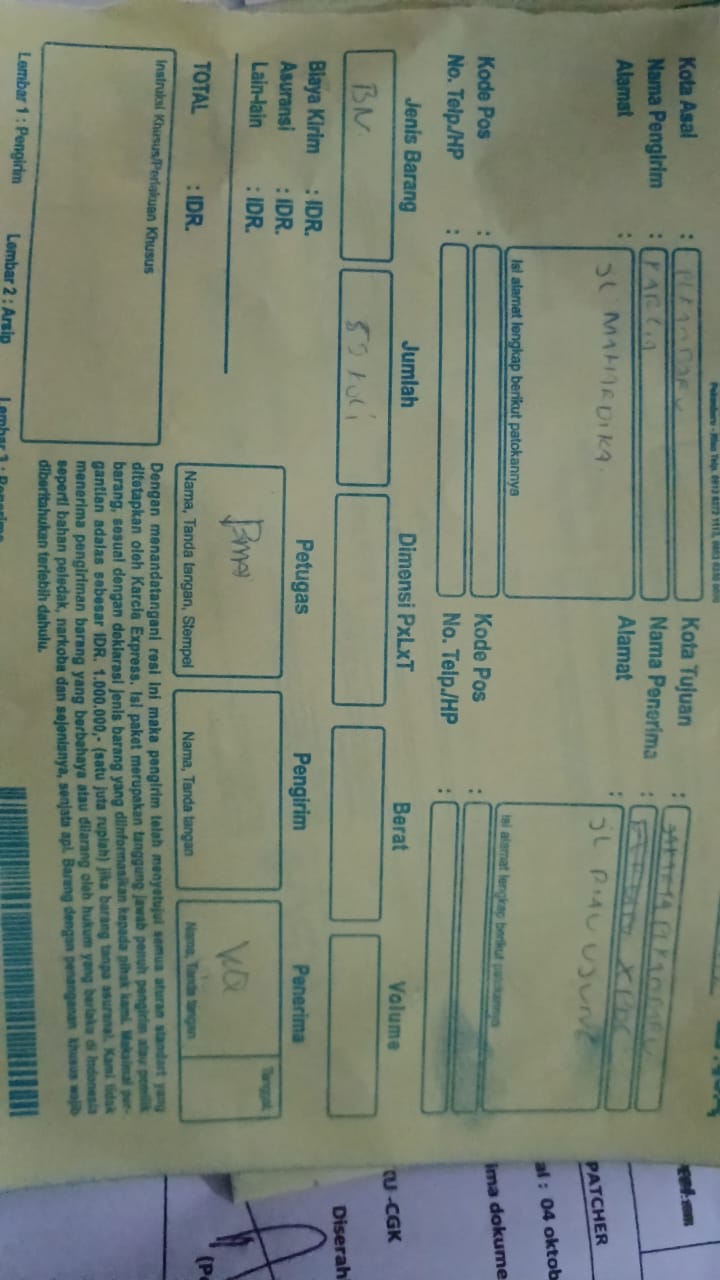 Kota Asal : PEKANBARU
Nama Pengirim : KARCIA
Alamat :
Isi alamat lengkap berikut patokannya
JL MAHARDIKA.
Kode Pos :
No. Telp./HP :
Kota Tujuan :
Nama Penerima :
Alamat :
Isi alamat lengkap berikut patokannya
JL RIAU UJUNG
Kode Pos :
No. Telp./HP :
Jenis Barang Jumlah Dimensi PxLxT Berat Volume
BN.
Biaya Kirim : IDR.
Asuransi : IDR.
Lain-lain : IDR.
TOTAL : IDR.
Instruksi Khusus/Perlakuan Khusus
Petugas Pengirim Penerima
Tanggal
Nama, Tanda tangan, Stempel
Nama, Tanda tangan
Nama, Tanda tangan
Dengan menandatangani resi ini maka pengirim telah menyetujui semua aturan standart yang
ditetapkan oleh Karcia Express. Isi paket merupakan tanggung jawab penuh pengirim atau pemilik
barang, sesuai dengan deklarasi jenis barang yang diinformasikan kepada pihak kami. Maksimal per-
gantian adalas sebesar IDR. 1.000.000,- (satu juta rupiah) jika barang tanpa asuransi. Kami tidak
menerima pengiriman barang yang berbahaya atau dilarang oleh hukum yang berlaku di Indonesia
seperti bahan peledak, narkoba dan sejenisnya, senjata api. Barang dengan penanganan khusus wajib
diberitahukan terlebih dahulu.
Lembar 1 : Pengirim Lembar 2 : Arsip Lembar 3 : Penerima
PATCHER
al : 04 oktob
ima dokume
-CGK
Diserah